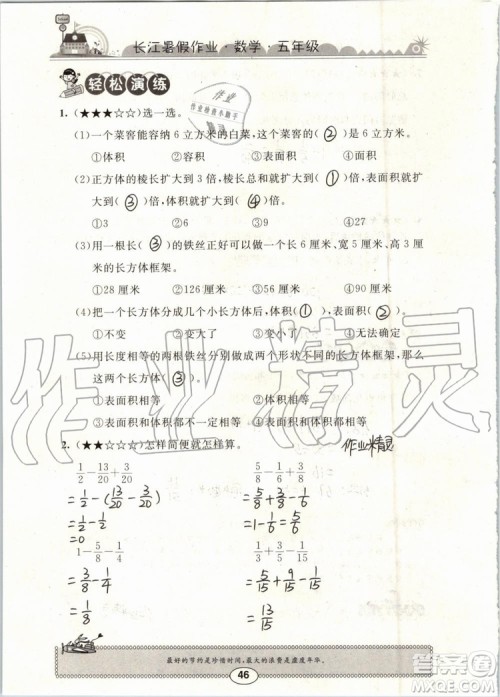 长江暑假作业·数学·五年级
轻松演练
1.(★★★☆☆)选一选。
(1)一个菜窖能容纳6立方米的白菜,这个菜窖的(②)是6立方米。
①体积 ②容积 ③表面积
(2)正方体的棱长扩大到3倍,棱长总和就扩大到(①)倍,表面积就扩大到(③)倍,体积扩大到(④)倍。
①3 ②6 ③9 ④27
(3)用一根长(③)的铁丝正好可以做一个长6厘米、宽5厘米、高3厘米的长方体框架。
①28厘米 ②126厘米 ③56厘米 ④90厘米
(4)把一个长方体分成几个小长方体后,体积(①),表面积(②)。
①不变 ②变大了 ③变小了 ④无法确定
(5)用长度相等的两根铁丝分别做成两个形状不同的长方体框架,那么两个长方体(③)。
①表面积相等 ②体积相等
③表面积和体积都不一定相等 ④表面积和体积都相等
2.(★★☆☆☆)怎样简便就怎样算。
作业精灵
1/2-13/20+3/20 5/8-1/6+3/8
=1/2-(13/20-3/20) =5/8+3/8-1/6
=1/2-1/2 =1-1/6=5/6
=0
1-5/8-1/4 1/3+3/5-1/15
=3/8-1/4 =5/15+9/15-1/15
=1/8 =13/15
最好的节约是珍惜时间,最大的浪费是虚度年华。
46
作业精灵